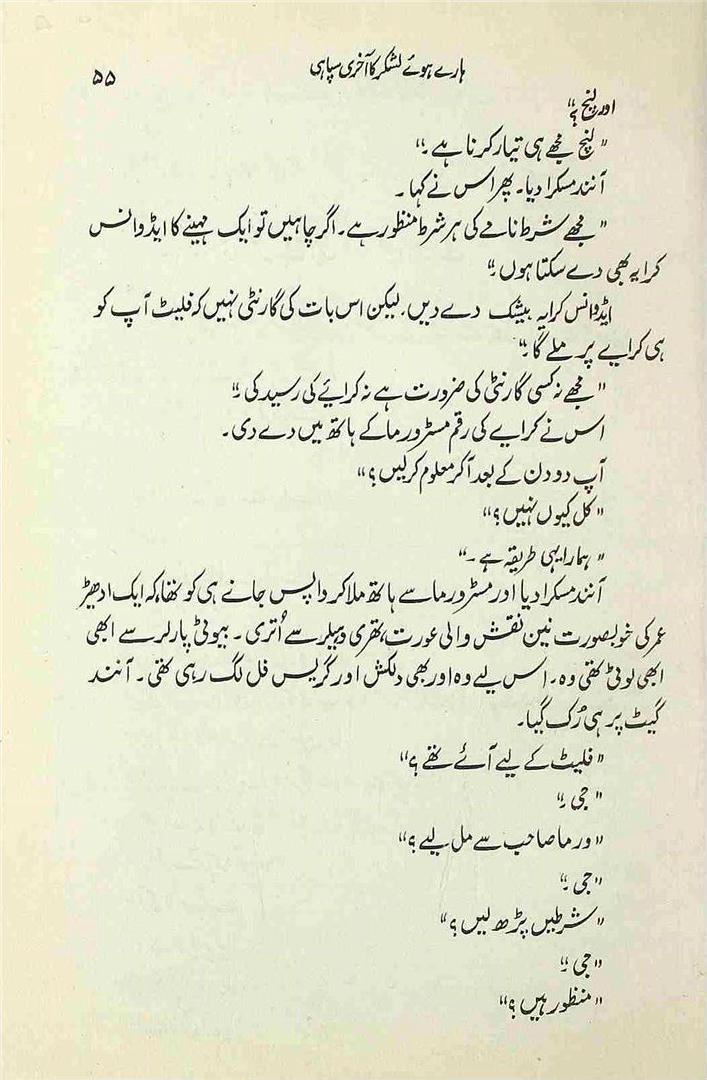 ہارے ہوئے لشکر کا آخری سپاہی ۵۵
اور لنچ ؟“
” لنچ مجھے ہی تیار کرنا ہے ۔“
آنند مسکرا دیا۔ پھر اس نے کہا ۔
” مجھے شرط نامے کی ہر شرط منظور ہے۔ اگر چاہیں تو ایک مہینے کا ایڈوانس
کرایہ بھی دے سکتا ہوں ۔“
ایڈوانس کرایہ بیشک دے دیں، لیکن اس بات کی گارنٹی نہیں کہ فلیٹ آپ کو
ہی کرایے پر ملے گا ۔“
” مجھے نہ کسی گارنٹی کی ضرورت ہے نہ کرائے کی رسید کی ۔“
اس نے کرایے کی رقم مسٹر ورما کے ہاتھ میں دے دی۔
آپ دو دن کے بعد آکر معلوم کرلیں ؟“
” کل کیوں نہیں ؟“
” ہمارا یہی طریقہ ہے ۔“
آنند مسکرا دیا اور مسٹر ورما سے ہاتھ ملا کر واپس جانے ہی کو تھا، کہ ایک ادھیڑ
عمر کی خوبصورت نین نقش والی عورت، تھری وہیلر سے اُتری ۔ بیوٹی پارلر سے ابھی
ابھی لوٹی تھی وہ ۔ اس لیے وہ اور بھی دلکش اور گریس فل لگ رہی تھی ۔ آنند
گیٹ پر ہی رُک گیا۔
” فلیٹ کے لیے آئے تھے ؟“
” جی ۔“
” ورما صاحب سے مل لیے ؟“
” جی ۔“
” شرطیں پڑھ لیں ؟“
” جی ۔“
” منظور ہیں ؟“